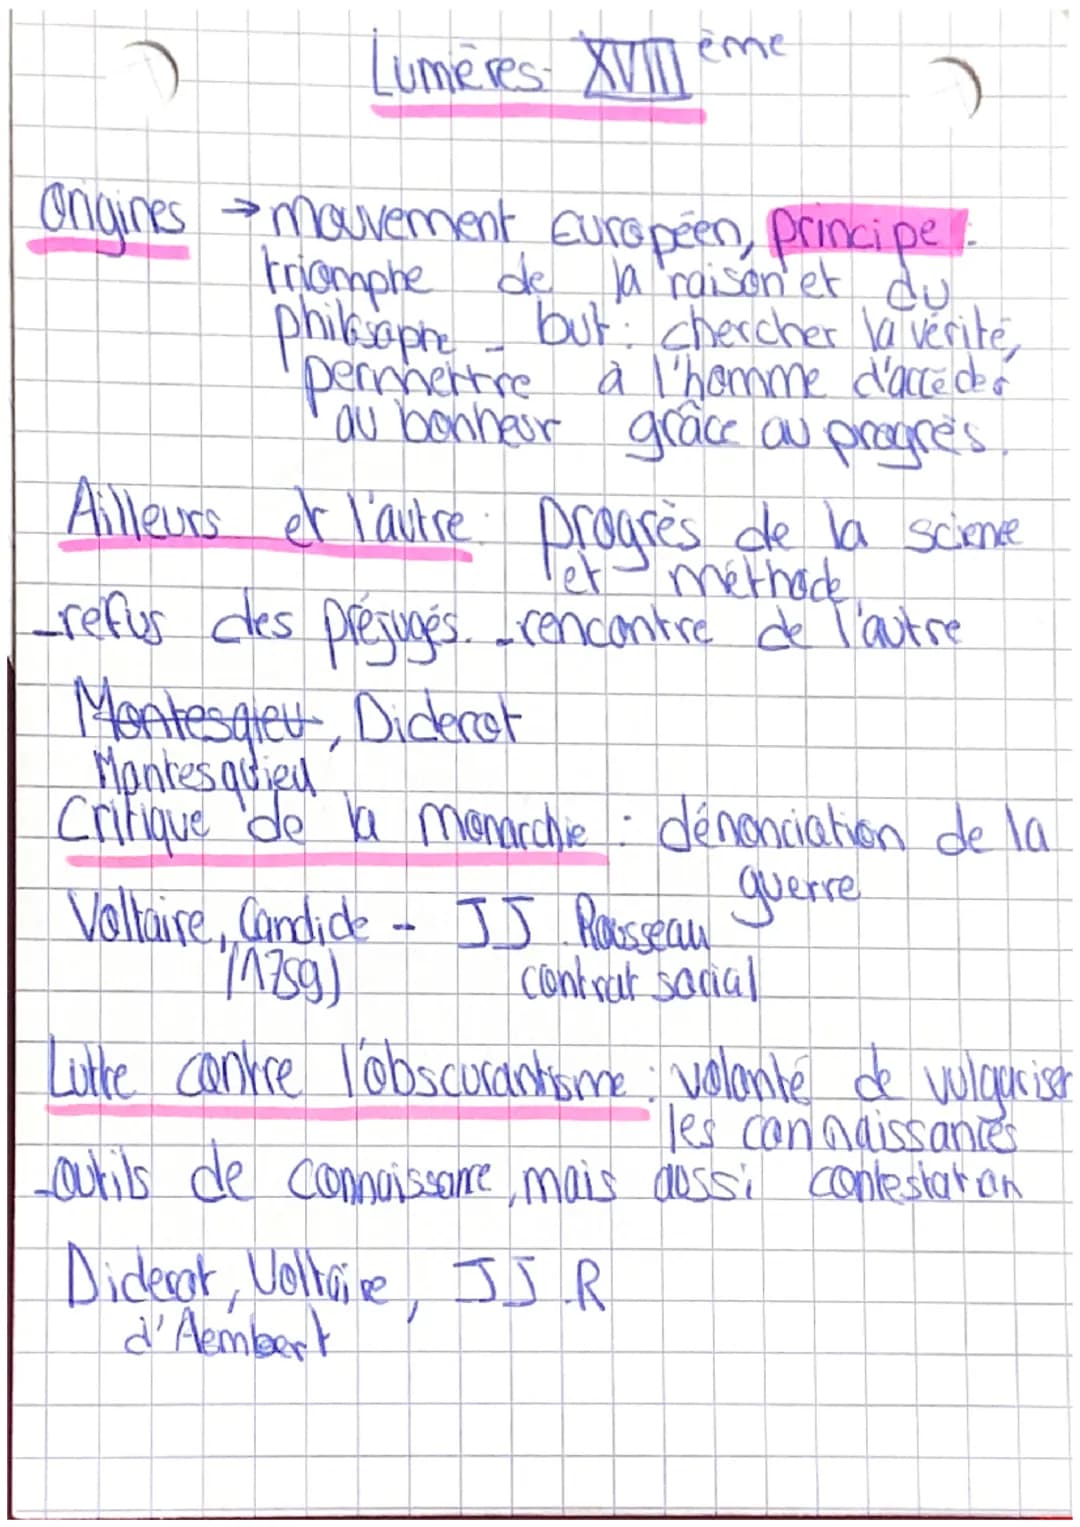 Lumières XVIII ème
Origines → mouvement Européen, principe :
triomphe de la raison et du
philosophe - but : chercher la vérité,
permhettre à l'homme d'accéder
au bonheur grâce au progrès.
Ailleurs et l'autre : progrès de la science
et méthode
-refus des préjugés. -rencontre de l'autre
Montesqieu, Diderot
Montesquieu
Critique de la monarchie : dénonciation de la
guerre
Voltaire, Candide - JJ Rousseau
(1759) contrat social
Lutte contre l'obscurantisme : volonté de vulgariser
les connaissances
-outils de connaissance, mais aussi contestation
Diderot, Voltaire, JJ.R
d'Aembert